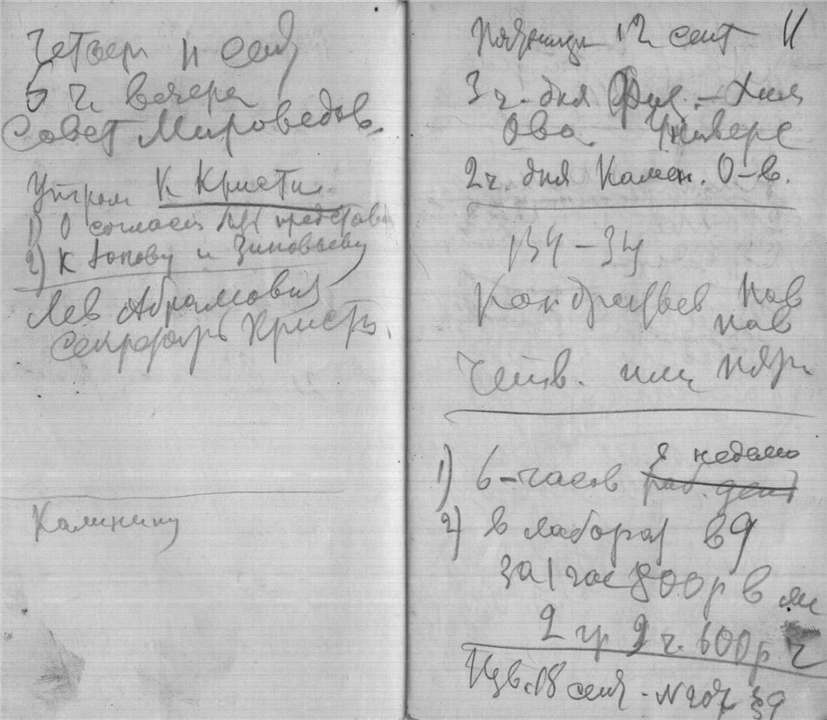 Четверг 11 сент
6 ч. вечера
Совет Мироведов.
Утром К Кристи.
1) О соглас представ
2) К Попову и Зиновьеву
Лев Абрамович
Секретарь Кристи.
Калинину
Пятница 12 сент 11
3 ч. дня Физ.-Хим
Ова. Универс
2 ч. дня Камен. О-в.
134-34
Кондратьев Пав
пав
Четв. или Пятн
1) 6-часов в неделю
раб. день
2) в лаборат в 9
За 1 час 800 р в
2 гр 2 ч. 600 р
Изв. 18 сент. - N 207 39